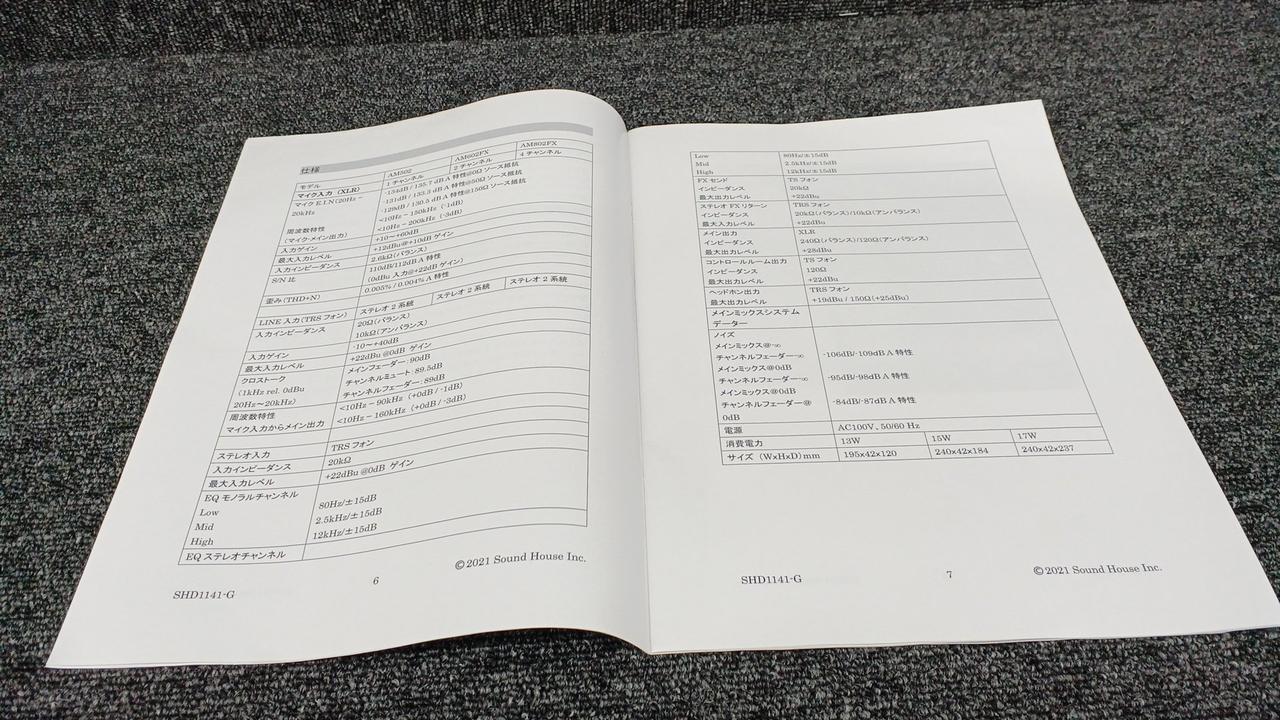 仕様
モデル AM502 AM602FX AM802FX
マイク入力 (XLR) 1 チャンネル 2 チャンネル 4 チャンネル
マイク E.I.N(20Hz – -134dB / 135.7 dB A 特性@0Ω ソース抵抗
20kHz -131dB / 133.3 dB A 特性@50Ω ソース抵抗
-129dB / 130.5 dB A 特性@150Ω ソース抵抗
周波数特性 <10Hz – 150kHz (-1dB)
(マイク-メイン出力) <10Hz – 200kHz (-3dB)
入力ゲイン +10~+60dB
最大入力レベル +12dBu@+10dB ゲイン
入力インピーダンス 2.6kΩ(バランス)
S/N 比 110dB/112dB A 特性
(0dBu 入力@+22dB ゲイン)
歪み(THD+N) 0.005% / 0.004% A 特性
LINE 入力(TRS フォン) ステレオ 2 系統 ステレオ 2 系統 ステレオ 2 系統
入力インピーダンス 20Ω(バランス)
10kΩ(アンバランス)
入力ゲイン -10~+40dB
最大入力レベル +22dBu @0dB ゲイン
クロストーク メインフェーダー: 90dB
(1kHz rel. 0dBu チャンネルミュート: 89.5dB
20Hz~20kHz) チャンネルフェーダー: 89dB
周波数特性 <10Hz – 90kHz (+0dB / -1dB)
マイク入力からメイン出力 <10Hz – 160kHz (+0dB / -3dB)
ステレオ入力 TRS フォン
入力インピーダンス 20kΩ
最大入力レベル +22dBu @0dB ゲイン
EQ モノラルチャンネル
Low 80Hz/±15dB
Mid 2.5kHz/±15dB
High 12kHz/±15dB
EQ ステレオチャンネル
©2021 Sound House Inc.
6
SHD1141-G
Low 80Hz/±15dB
Mid 2.5kHz/±15dB
High 12kHz/±15dB
FX センド TS フォン
インピーダンス 20kΩ
最大出力レベル +22dBu
ステレオ FX リターン TRS フォン
インピーダンス 20kΩ(バランス)/10kΩ(アンバランス)
最大入力レベル +22dBu
メイン出力 XLR
インピーダンス 240Ω(バランス)/120Ω(アンバランス)
最大出力レベル +28dBu
コントロールルーム出力 TS フォン
インピーダンス 120Ω
最大出力レベル +22dBu
ヘッドホン出力 TRS フォン
最大出力レベル +19dBu / 150Ω(+25dBu)
メインミックスシステム
データー
ノイズ
メインミックス@-∞
チャンネルフェーダー-∞ -106dB/-109dB A 特性
メインミックス@0dB
チャンネルフェーダー-∞ -95dB/-98dB A 特性
メインミックス@0dB
チャンネルフェーダー@ -84dB/-87dB A 特性
0dB
電源 AC100V、50/60 Hz
消費電力 13W 15W 17W
サイズ (W×H×D) mm 195x42x120 240x42x184 240x42x237
SHD1141-G 7 ©2021 Sound House Inc.